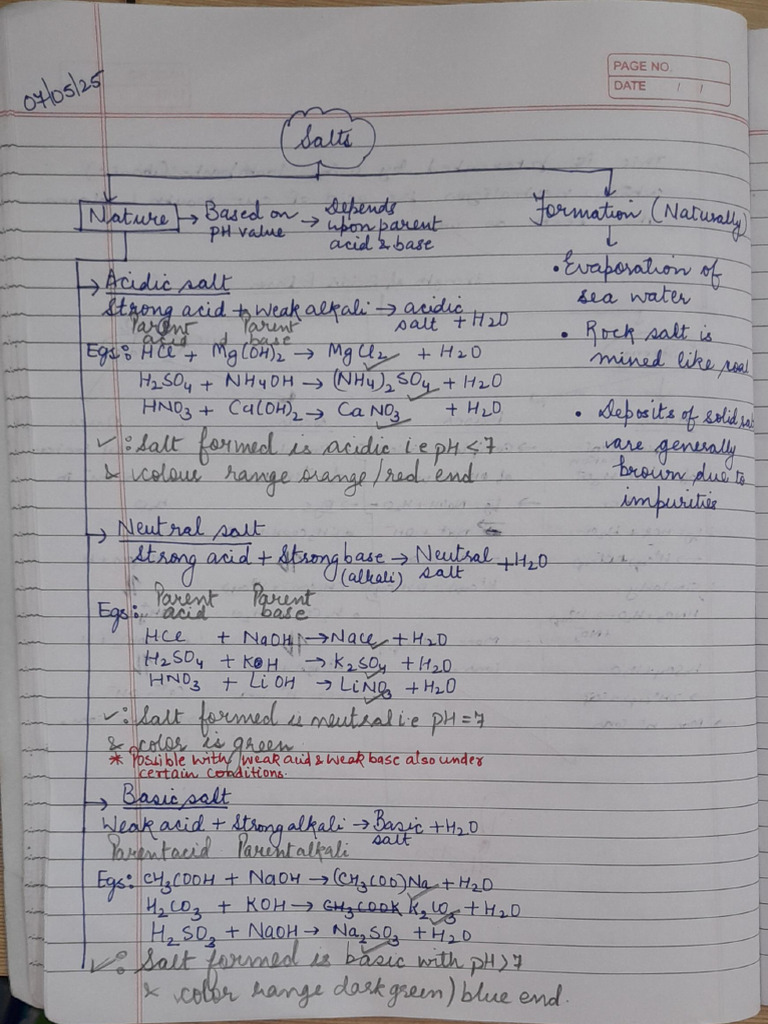 PAGE NO.
DATE / /
07/05/25
Salts
Nature → Based on pH value → Depends upon parent acid & base
Formation (Naturally)
• Evaporation of
sea water
• Rock salt is
mined like coal
• Deposits of solid
are generally
brown due to
impurities
→ Acidic salt
Strong acid + weak alkali → acidic salt + H2O
Parent acid + Parent base
Egs: HCl + Mg(OH)2 → MgCl2 + H2O
H2SO4 + NH4OH → (NH4)2SO4 + H2O
HNO3 + Ca(OH)2 → CaNO3 + H2O
✓: Salt formed is acidic i.e pH < 7
& colour range orange/red end
→ Neutral salt
Strong acid + Strong base (alkali) → Neutral salt + H2O
Parent acid Parent base
Egs:
HCl + NaOH → NaCl + H2O
H2SO4 + KOH → K2SO4 + H2O
HNO3 + LiOH → LiNO3 + H2O
✓: Salt formed is neutral i.e pH = 7
& color is green
* Possible with weak acid & weak base also under
certain conditions.
→ Basic salt
Weak acid + Strong alkali → Basic salt + H2O
Parent acid Parent alkali
Egs: CH3COOH + NaOH → (CH3COO)Na + H2O
H2CO3 + KOH → CH3COOK K2CO3 + H2O
H2SO3 + NaOH → Na2SO3 + H2O
✓: Salt formed is basic with pH > 7
& color range dark green) blue end.